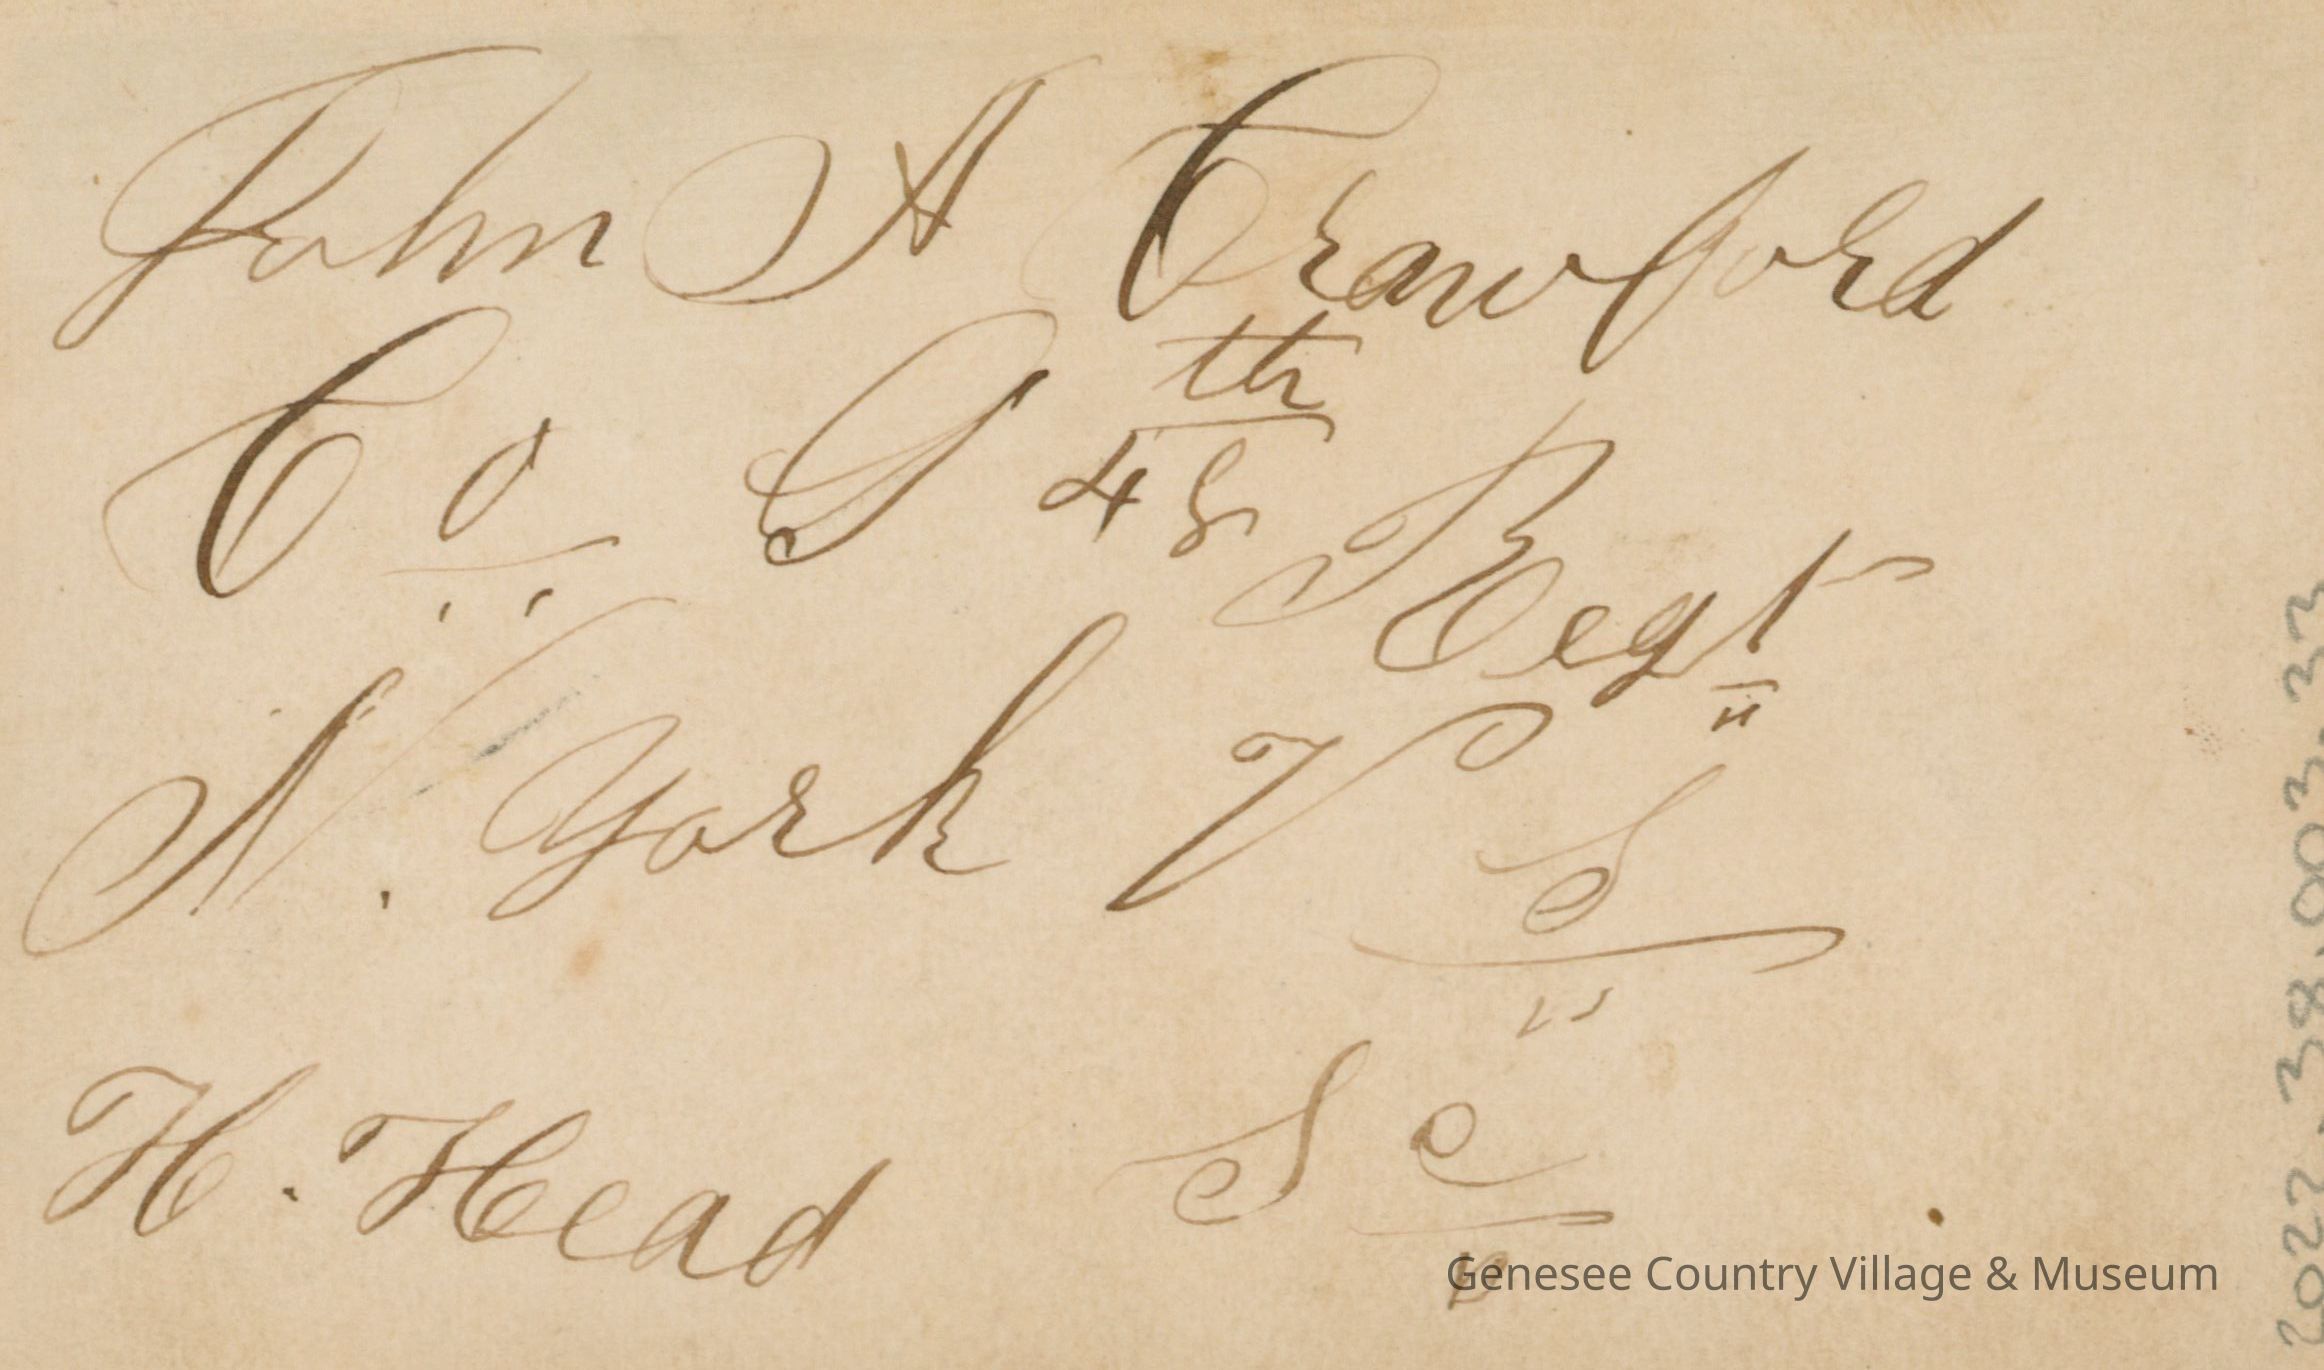 John A Crawford
Co G 48th Regt
N. York V S
H. Head S C
Genesee Country Village & Museum
2022.38.003.33